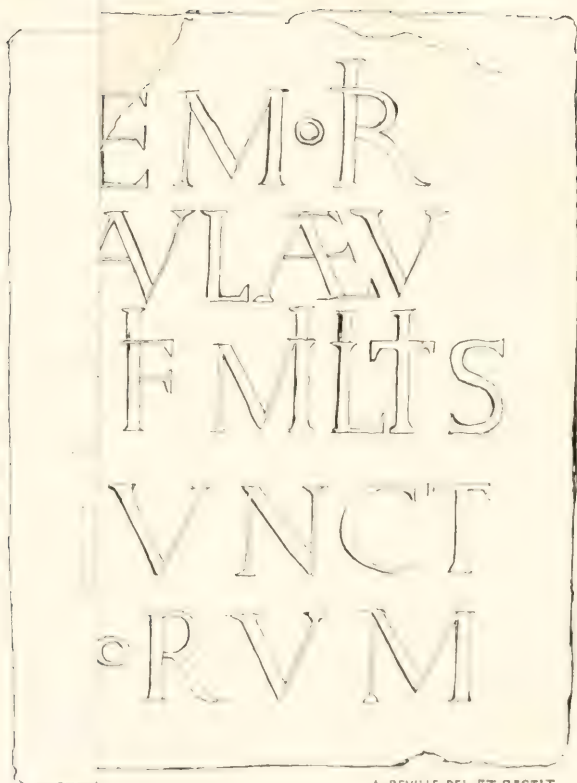 EMoR
AVLÆV
F MILTS
VNCT
oRVM
A. DEVILLE DEL ET